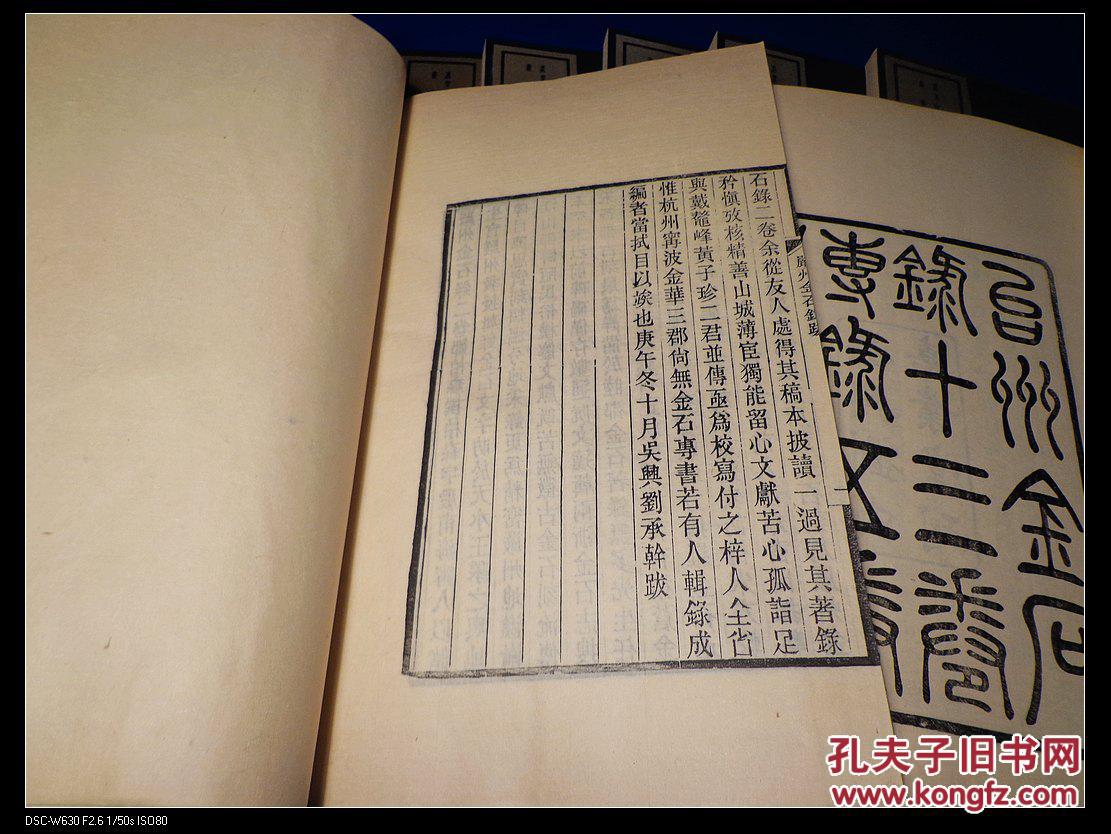 石錄二卷余從友人處得其稿本披讀一過見其著錄
矜愼攷核精善山城薄宦獨能留心文獻苦心孤詣足
與戴鼇峰黃子珍二君並傳亟爲校寫付之梓人全省
惟杭州甯波金華三郡尙無金石專書若有人輯錄成
編者當拭目以竢也庚午冬十月吳興劉承幹跋
嚴州金石錄跋
台州金石
錄十三卷
專錄五卷
孔夫子旧书网
www.kongfz.com
DSC-W630 F2.6 1/50s ISO80